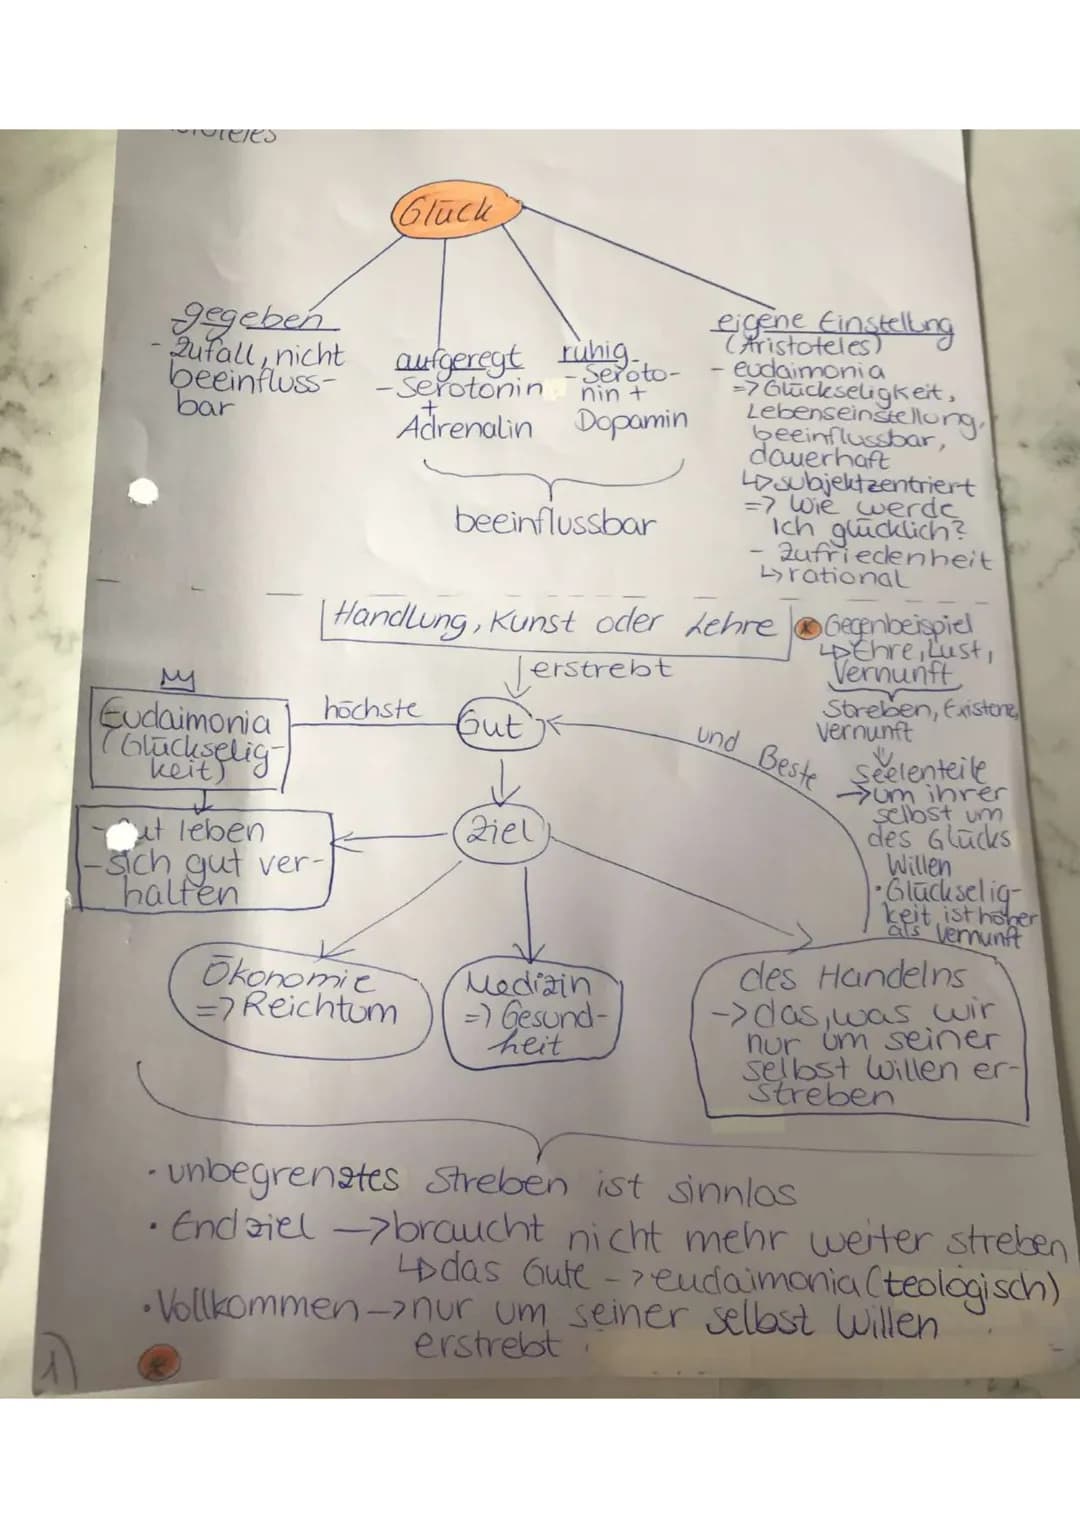 Glück
gegeben
- Zufall, nicht
beeinfluss-
bar
aufgeregt
- Serotonin
+
Adrenalin
ruhig
- Seroto-
nin +
Dopamin
beeinflussbar
eigene Einstellung
(Aristoteles)
- eudaimonia
=> Glückseligkeit,
Lebenseinstellung,
beeinflussbar,
dauerhaft
↳ subjektzentriert
=> Wie werde
Ich glücklich?
- Zufriedenheit
↳ rational
Handlung, Kunst oder Lehre
erstrebt
Gegenbeispiel
↳ Ehre, Lust,
Vernunft
Streben, Existenz,
Vernunft
Seelenteile
→ um ihrer
selbst um
des Glücks
Willen
• Glückselig-
keit ist höher
als Vernunft
Eudaimonia
(Glückselig-
keit)
höchste
Gut
und Beste
- Gut leben
- sich gut ver-
halten
Ziel
Ökonomie
=> Reichtum
Medizin
=> Gesund-
heit
des Handelns
-> das, was wir
nur um seiner
selbst Willen er-
streben
• unbegrenztes Streben ist sinnlos
• Endziel -> braucht nicht mehr weiter streben
↳ das Gute -> eudaimonia (teologisch)
• Vollkommen -> nur um seiner selbst Willen
erstrebt
1)